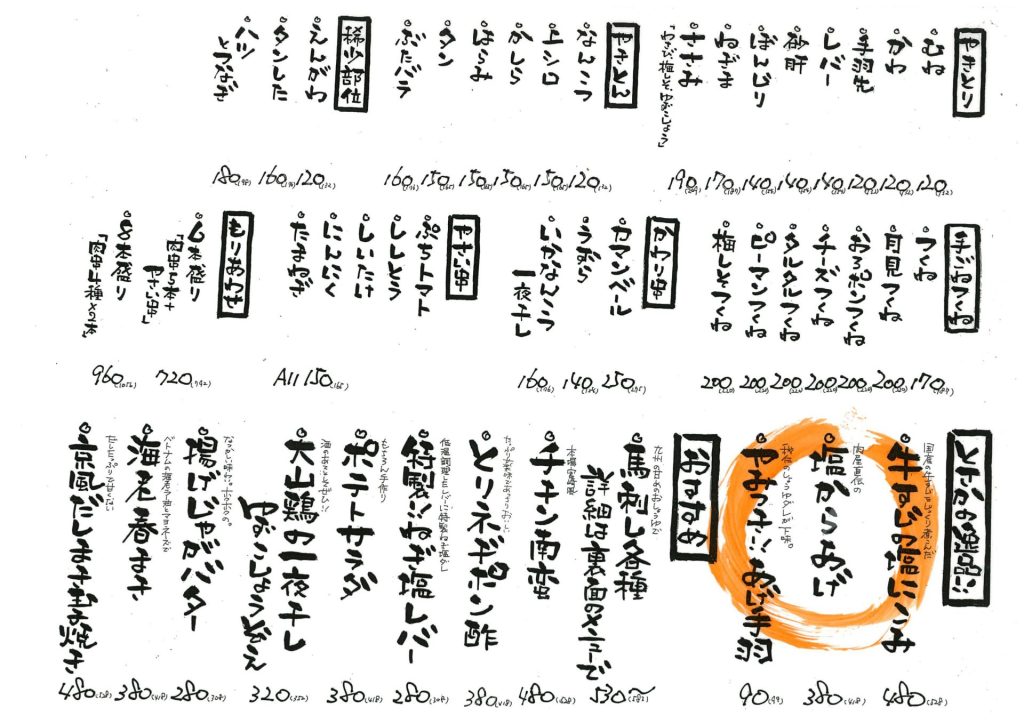 やきとり
むね
120(132)
かわ
120(132)
手羽先
120(132)
レバー
140(154)
砂肝
140(154)
ぼんじり
140(154)
ねぎま
170(187)
ささみ
「わさび、梅しそ、ゆずこしょう」
190(209)
やきとん
なんこつ
120(132)
上シロ
150(165)
かしら
150(165)
はらみ
150(165)
タン
150(165)
ぶたバラ
160(176)
稀少部位
えんがわ
120(132)
タンした
160(176)
ハツ
とつなぎ
180(198)
手ごねつくね
つくね
170(187)
月見つくね
200(220)
おろポンつくね
200(220)
チーズつくね
200(220)
タルタルつくね
200(220)
ピーマンつくね
200(220)
梅しそつくね
200(220)
かわり串
カマンベール
250(275)
うずら
140(154)
いかなんこつ
一夜干し
160(176)
やさい串
ぷちトマト
ししとう
しいたけ
にんにく
たまねぎ
All 150(165)
もりあわせ
6本盛り
「肉串5本+
やさい串」
720(792)
8本盛り
「肉串4種×2本」
960(1056)
とさかの絶品!!
国産の牛すじをじっくり煮こんだ
牛すじの塩にこみ
480(528)
肉屋直伝の
塩からあげ
380(418)
秘伝のしょうゆダレが下味。
やみつき!!あげ手羽
90(99)
おすすめ
九州のあまめのおしょうゆで
馬刺し各種
詳細は裏面のメニューで
530〜(583)
本場宮崎風
チキン南蛮
480(528)
たっぷり薬味でさっぱりおいしい
とりネギポン酢
380(418)
低温調理したレバーに特製ねぎ塩ダレ
特製!!ねぎ塩レバー
280(308)
もちろん手作り
ポテトサラダ
380(418)
酒のあてにぜひ!!
大山鶏の一夜干し
ゆずこしょうぞえ
320(352)
なつかしい味わい。ホクホクの。
揚げじゃがバター
280(308)
ベトナムの海老ラー油とマヨネーズで
海老春まき
380(418)
だしたっぷりであまくない
京風だしまき玉子焼き
480(528)